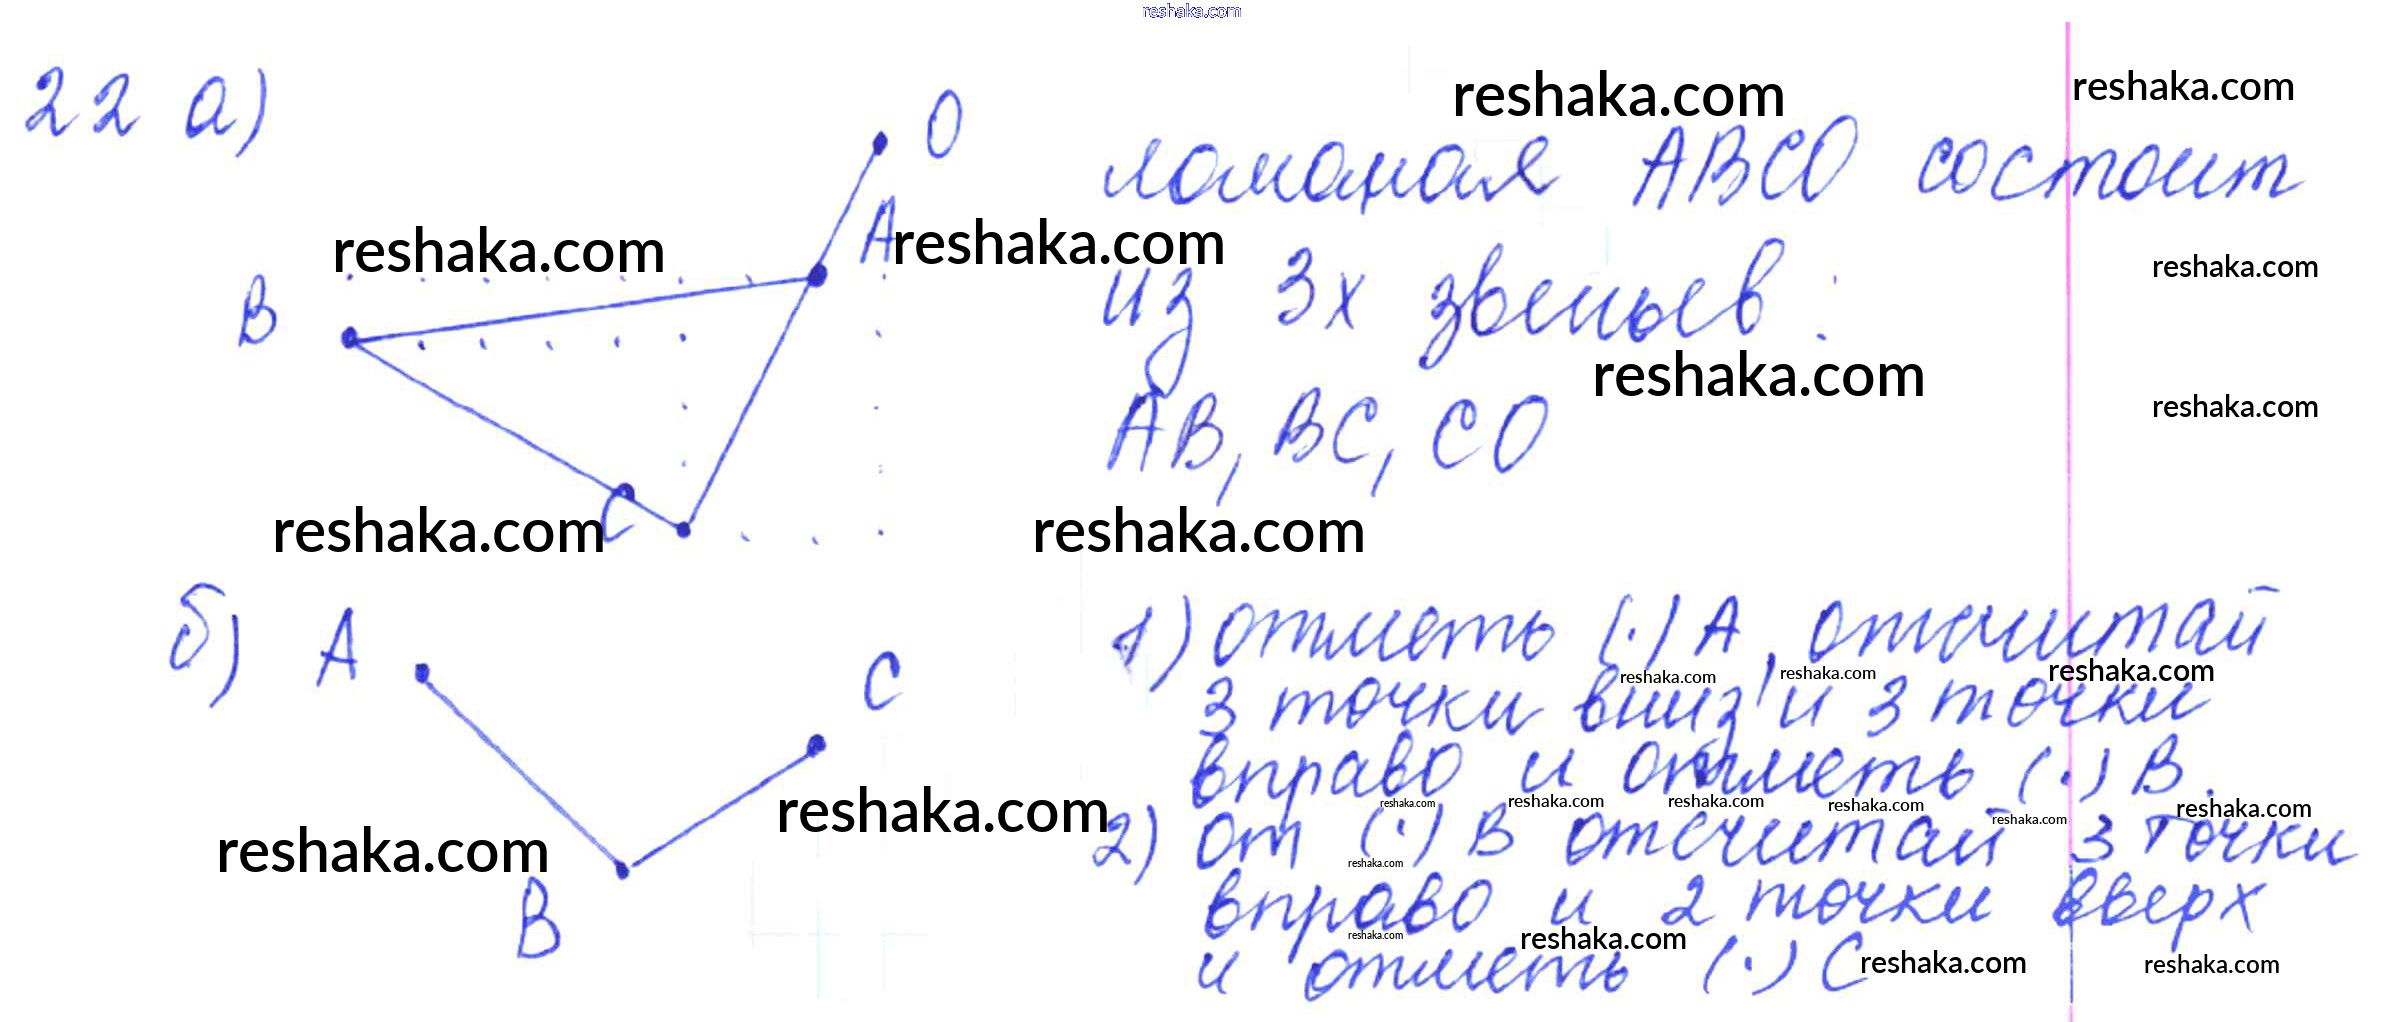 reshaka.com
22 а)
O
reshaka.com
reshaka.com
ломаная ABCO состоит
A
reshaka.com
reshaka.com
B
из 3х звеньев:
reshaka.com
reshaka.com
AB, BC, CO
reshaka.com
C
reshaka.com
reshaka.com
б)
A
C
B
1) отметь (·) A, отсчитай
reshaka.com
reshaka.com
reshaka.com
3 точки вниз и 3 точки
вправо и отметь (·) B.
reshaka.com
reshaka.com
reshaka.com
reshaka.com
reshaka.com
reshaka.com
reshaka.com
reshaka.com
2) от (·) B отсчитай 3 точки
reshaka.com
вправо и 2 точки вверх
reshaka.com
reshaka.com
и отметь (·) C
reshaka.com
reshaka.com